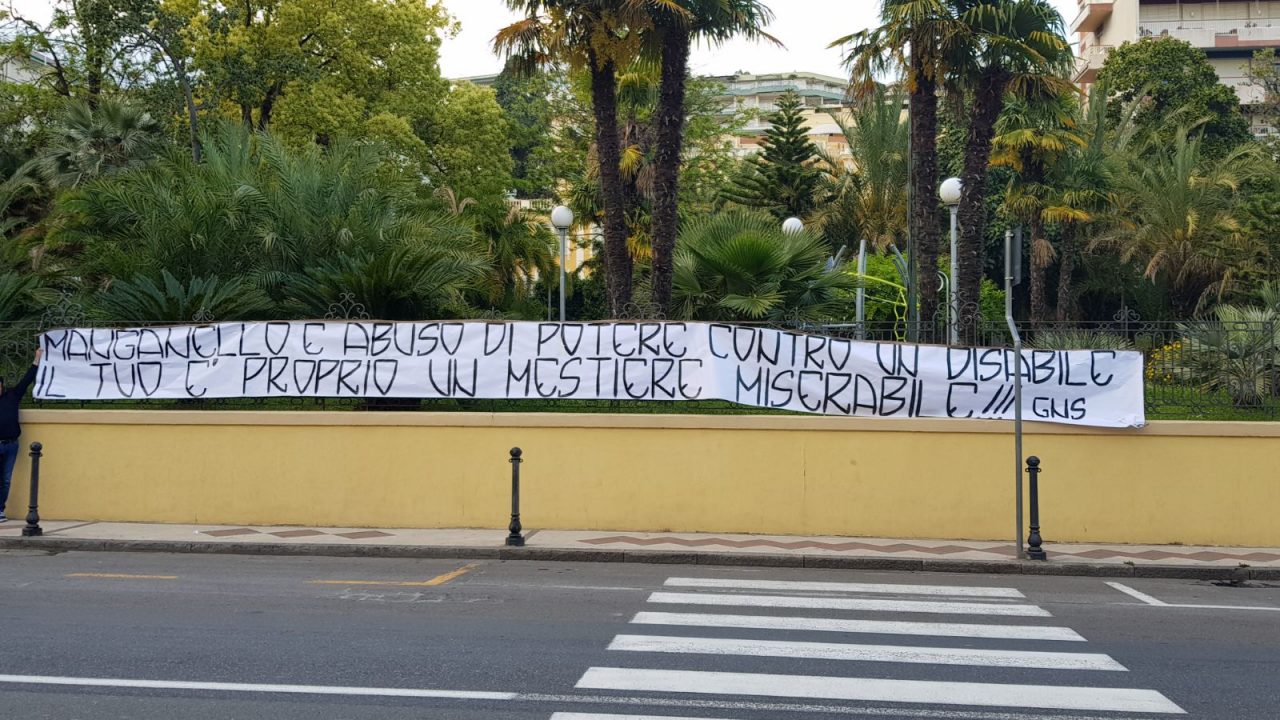 MANGANELLO E ABUSO DI POTERE CONTRO UN DISABILE
IL TUO E' PROPRIO UN MESTIERE MISERABILE!!! GNS